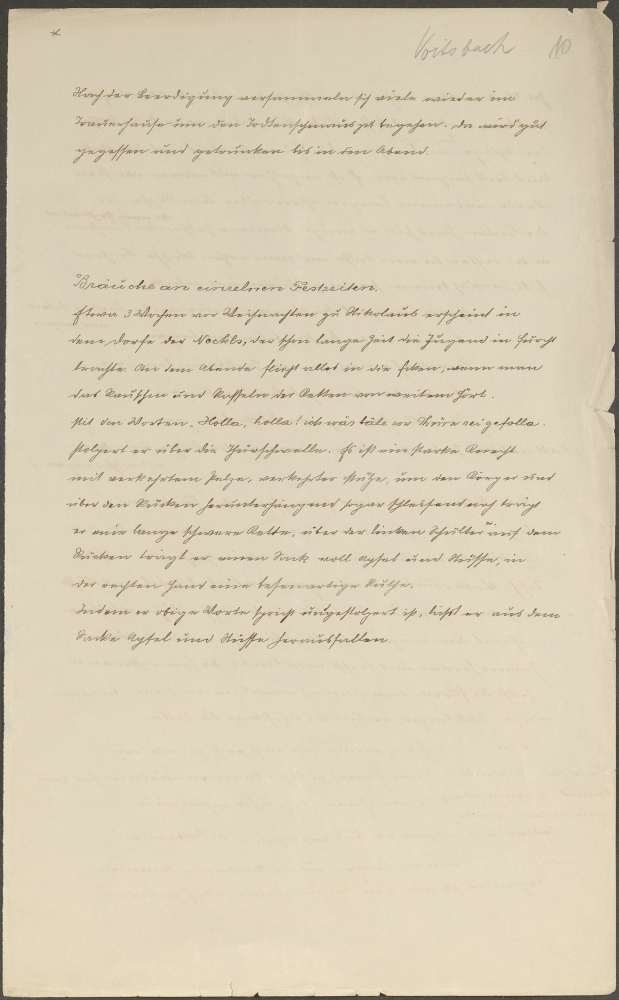 Voitsbach 10
Nach der Beerdigung versammeln sich viele wieder im
Trauerhause um den Todtenschmaus zu begehen. Da wird gut
gegessen und getrunken bis in den Abend.
Bräuche an einzelnen Festzeiten.
Etwa 3 Wochen vor Weihnachten zu Nikolaus erscheint in
dem Dorfe der Nockls, der schon lange Zeit die Jugend in Furcht
brachte. An dem Abende flieht alles in die Ecken, wenn man
das Rauschen und Rasseln der Ketten von weitem hört.
Mit den Worten, Holla, holla!
stolpert er über die Thürschwelle. Es ist ein starker Knecht
mit verkehrtem Pelze, verkehrter Mütze, um den Körper und
über den Rücken herunterhängend sogar schleifend trägt
er eine lange schwere Kette, über der linken Schulter auf dem
Rücken trägt er einen Sack voll Apfel und Nüsse, in
der rechten Hand eine besenartige Ruthe.
Indem er obige Worte spricht und gestolpert ist, läßt er aus dem
Sacke Apfel und Nüsse herausfallen.